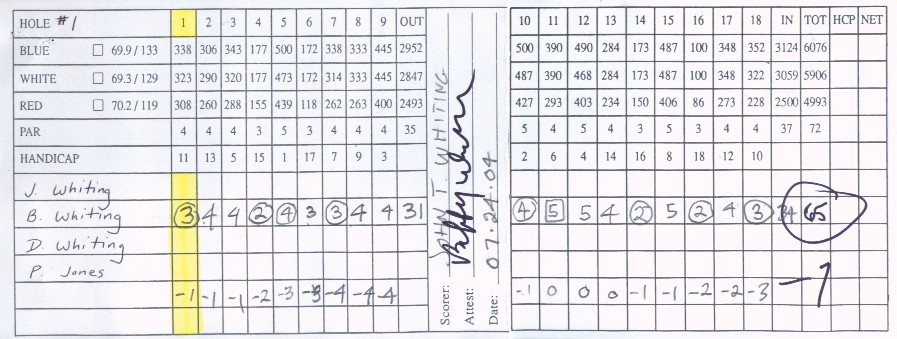 HOLE #1 1 2 3 4 5 6 7 8 9 OUT 10 11 12 13 14 15 16 17 18 IN TOT HCP NET
BLUE 69.9 / 133 338 306 343 177 500 172 338 333 445 2952 500 390 490 284 173 487 100 348 352 3124 6076
WHITE 69.3 / 129 323 290 320 177 473 172 314 333 445 2847 487 390 468 284 173 487 100 348 322 3059 5906
RED 70.2 / 119 308 260 288 155 439 118 262 263 400 2493 427 293 403 234 150 406 86 273 228 2500 4993
PAR 4 4 4 3 5 3 4 4 4 35 5 4 5 4 3 5 3 4 4 37 72
HANDICAP 11 13 5 15 1 17 7 9 3 2 6 4 14 16 8 18 12 10
J. Whiting
B. Whiting 3 4 4 2 4 3 3 4 4 31 4 5 5 4 2 5 2 4 3 34 65
D. Whiting
P. Jones
-1 -1 -1 -2 -3 -3 -4 -4 -4 -1 0 0 0 -1 -1 -2 -2 -3 -7
Scorer: JOHN T. WHITING
Attest:
Date: 07.24.04